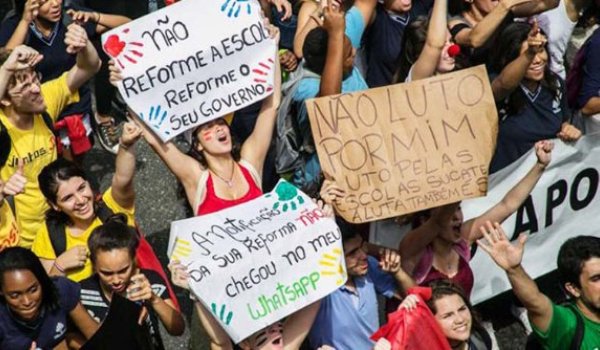 NÃO
REFORME A ESCOLA
REFORME O
SEU GOVERNO.
NÃO LUTO
POR MIM
LUTO PELAS
ESCOLAS SUCATEADAS
A LUTA TAMBÉM É
A NOTIFICAÇÃO
DA SUA REFORMA NÃO
CHEGOU NO MEU
WHATSAPP
APO